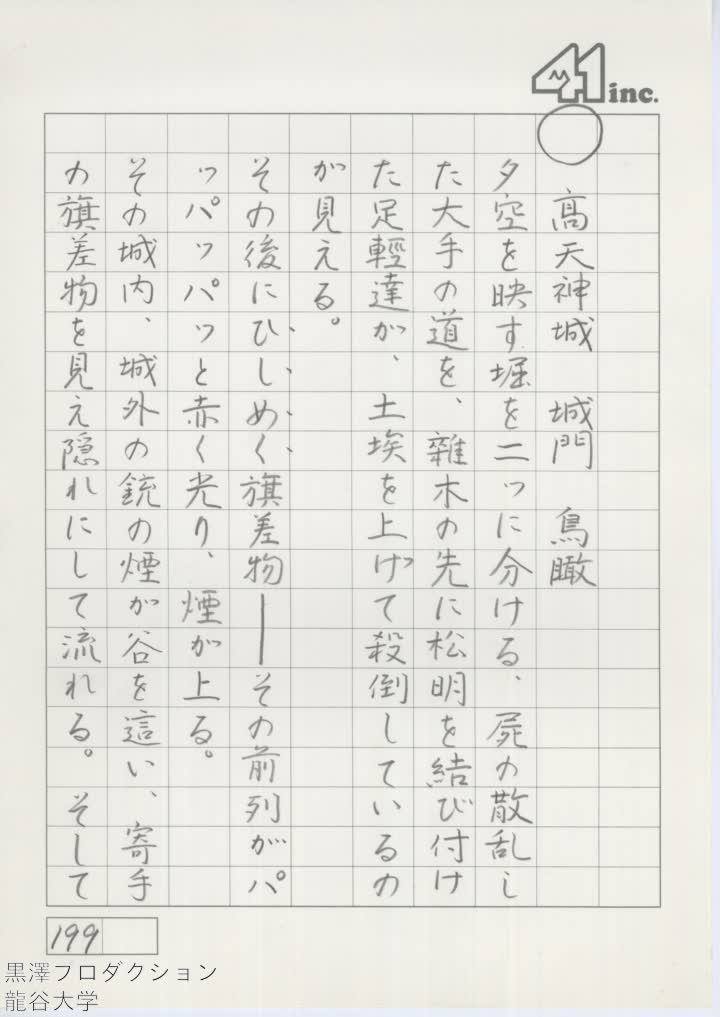 41 inc.
○
高天神城 城門 鳥瞰
夕空を映す堀を二ツに分ける、屍の散乱し
た大手の道を、雜木の先に松明を結び付け
た足輕達が、土埃を上げて殺倒しているの
が見える。
その後にひしめく旗差物──その前列がパ
ッパッパッと赤く光り、煙が上る。
その城内、城外の銃の煙が谷を這い、寄手
の旗差物を見え隠れにして流れる。そして
199
黒澤プロダクション
龍谷大学